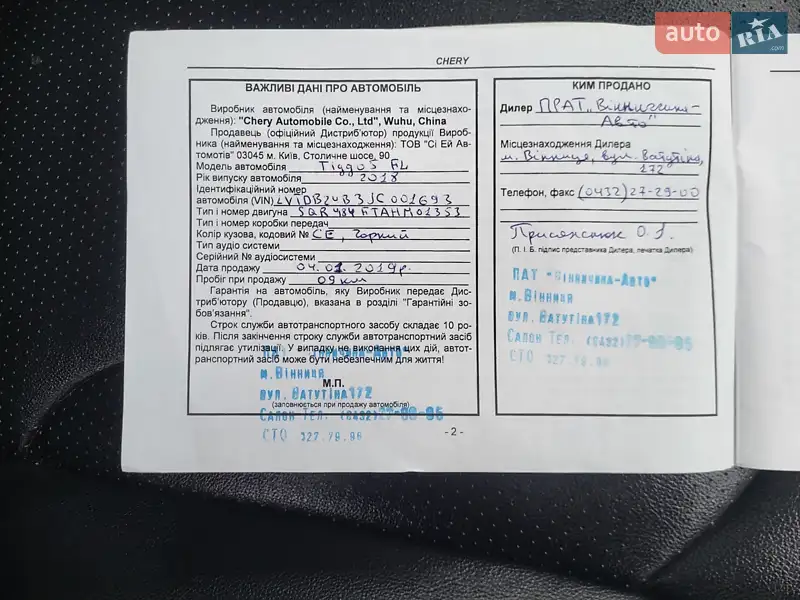 auto RIA .com
CHERY
ВАЖЛИВІ ДАНІ ПРО АВТОМОБІЛЬ
Виробник автомобіля (найменування та місцезнахо-
дження): "Chery Automobile Co., Ltd", Wuhu, China
Продавець (офіційний Дистриб'ютор) продукції Вироб-
ника (найменування та місцезнаходження): ТОВ "Сі Ей Ав-
томотів" 03045 м. Київ, Столичне шосе, 90
Модель автомобіля Tiggo5 FL
Рік випуску автомобіля 2018
Ідентифікаційний номер
автомобіля (VIN) LVTDB24B3JC001693
Тип і номер двигуна SQR484FTAHM01353
Тип і номер коробки передач
Колір кузова, кодовий № CE, Чорний
Тип аудіо системи
Серійний № аудіосистеми
Дата продажу 04.01.2019р.
Пробіг при продажу 09 км
Гарантія на автомобіль, яку Виробник передає Дис-
триб'ютору (Продавцю), вказана в розділі "Гарантійні зо-
бов'язання".
Строк служби автотранспортного засобу складає 10 ро-
ків. Після закінчення строку служби автотранспортний засіб
підлягає утилізації. У випадку не виконання цих дій, автот-
ранспортний засіб може бути небезпечним для життя!
ПАТ
м.Вінниця
М.П.
вул. Ватутіна 172
(заповнюється при продажу автомобіля)
Салон Тел. (0432)
СТО
- 2 -
КИМ ПРОДАНО
Дилер ПРАТ „Вінниччина-
Авто"
Місцезнаходження Дилера
м. Вінниця, вул. Ватутіна,
172
Телефон, факс (0432) 27-29-00
Присяжнюк О.
(П. І. Б. підпис представника Дилера, печатка Дилера)
ПАТ "Вінниччина-Авто"
м.Вінниця
вул. Ватутіна 172
Салон Тел. (0432)
СТО